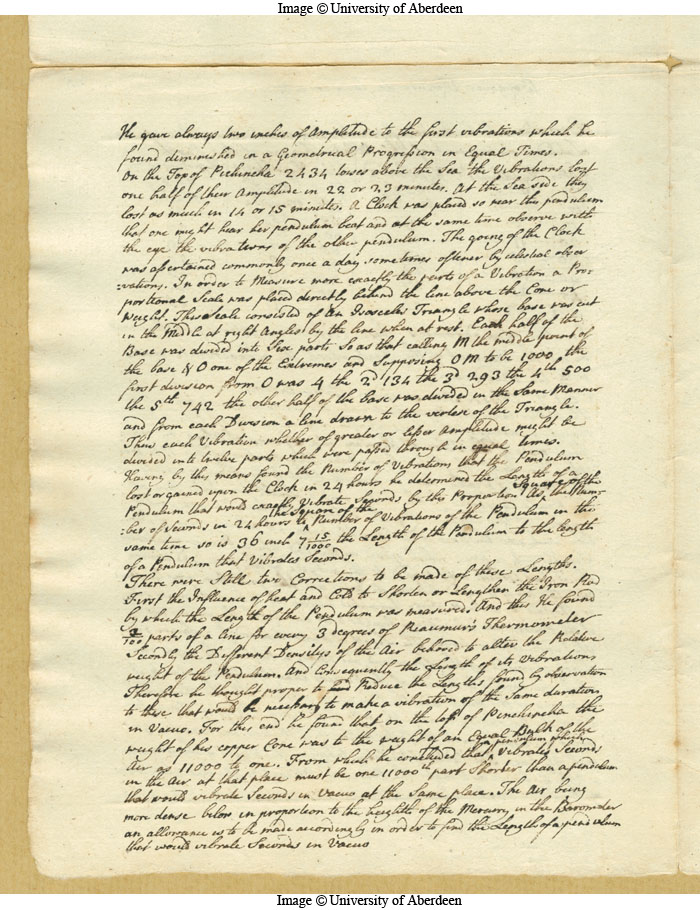 Image © University of Aberdeen
He gave always two inches of Amplitude to the first vibrations which he
found diminished in a Geometrical Progression in Equal Times.
On the Top of Pichincha 2434 toises above the Sea the Vibrations lost
one half of their Amplitude in 22 or 23 minutes. At the Sea side they
lost as much in 14 or 15 minutes. A Clock was placed so near this pendulum
that one might hear her pendulum beat and at the same time observe with
the eye the vibrations of the other pendulum. The going of the Clock
was ascertained commonly once a day sometimes oftener by celestial obser
-vations. In order to Measure more exactly the parts of a Vibration a Pro-
portional Scale was placed directly behind the line above the Cone or
Weight. This Scale consisted of An Isosceles Triangle whose base was cut
in the Middle at right Angles by the line when at rest. Each half of the
Base was divided into Six parts So as that calling M the middle point of
the base & O one of the Extremes and Supposing OM to be 1000, the
first division from O was 4 the 2d 134 the 3d 293 the 4th 500
the 5th 742 the other half of the base was divided in the Same Manner
and from each Division a line drawn to the vertex of the Triangle.
Thus each Vibration whether of greater or lesser Amplitude might be
divided into twelve parts which were passed through in equal times.
Having by this means found the Number of Vibrations that the Pendulum
lost or gained upon the Clock in 24 hours he determined the Length of a
Pendulum that would exactly Vibrate Seconds by this Proportion As the Square of the Num-
:ber of Seconds in 24 hours to the Square of the Number of Vibrations of the Pendulum in the
same time so is 36 inch 7 15/1000 the Length of the Pendulum to the length
of a Pendulum that Vibrates Seconds.
There were Still two Corrections to be made of these Lengths.
First the Influence of heat and Cold to Shorten or Lengthen the Iron Rod
by which the Length of the Pendulum was measured. And this He found
/100 parts of a line for every 3 degrees of Reaumur's Thermometer
Secondly the Different Densitys of the Air behoved to alter the Relative
weight of the Pendulum. And Consequently the Length of its Vibrations
Therefore he thought proper to Reduce the Lengths found by observation
to these that would be necessary to make a vibration of the Same duration
in Vacuo. For this end he found that on the top of Pinchincha the
weight of his copper Cone was to the weight of an Equal Bulk of the
Air as 11000 to one. From which he concluded that a pendulum which Vibrates Seconds
in the Air at that place must be one 11000th part Shorter than a pendulum
that would vibrate Seconds in Vacuo at the Same place. The Air being
more dense below in proportion to the heighth of the Mercury in the Barometer
an allowance is to be made accordingly in order to find the Length of a pendulum
that would vibrate Seconds in Vacuo
Image © University of Aberdeen